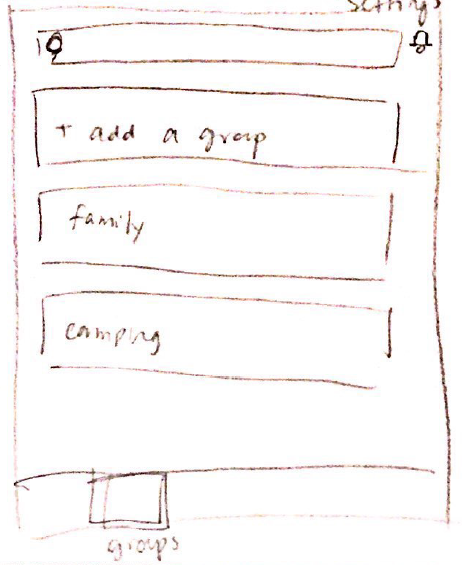 settings
+ add a group
family
camping
groups